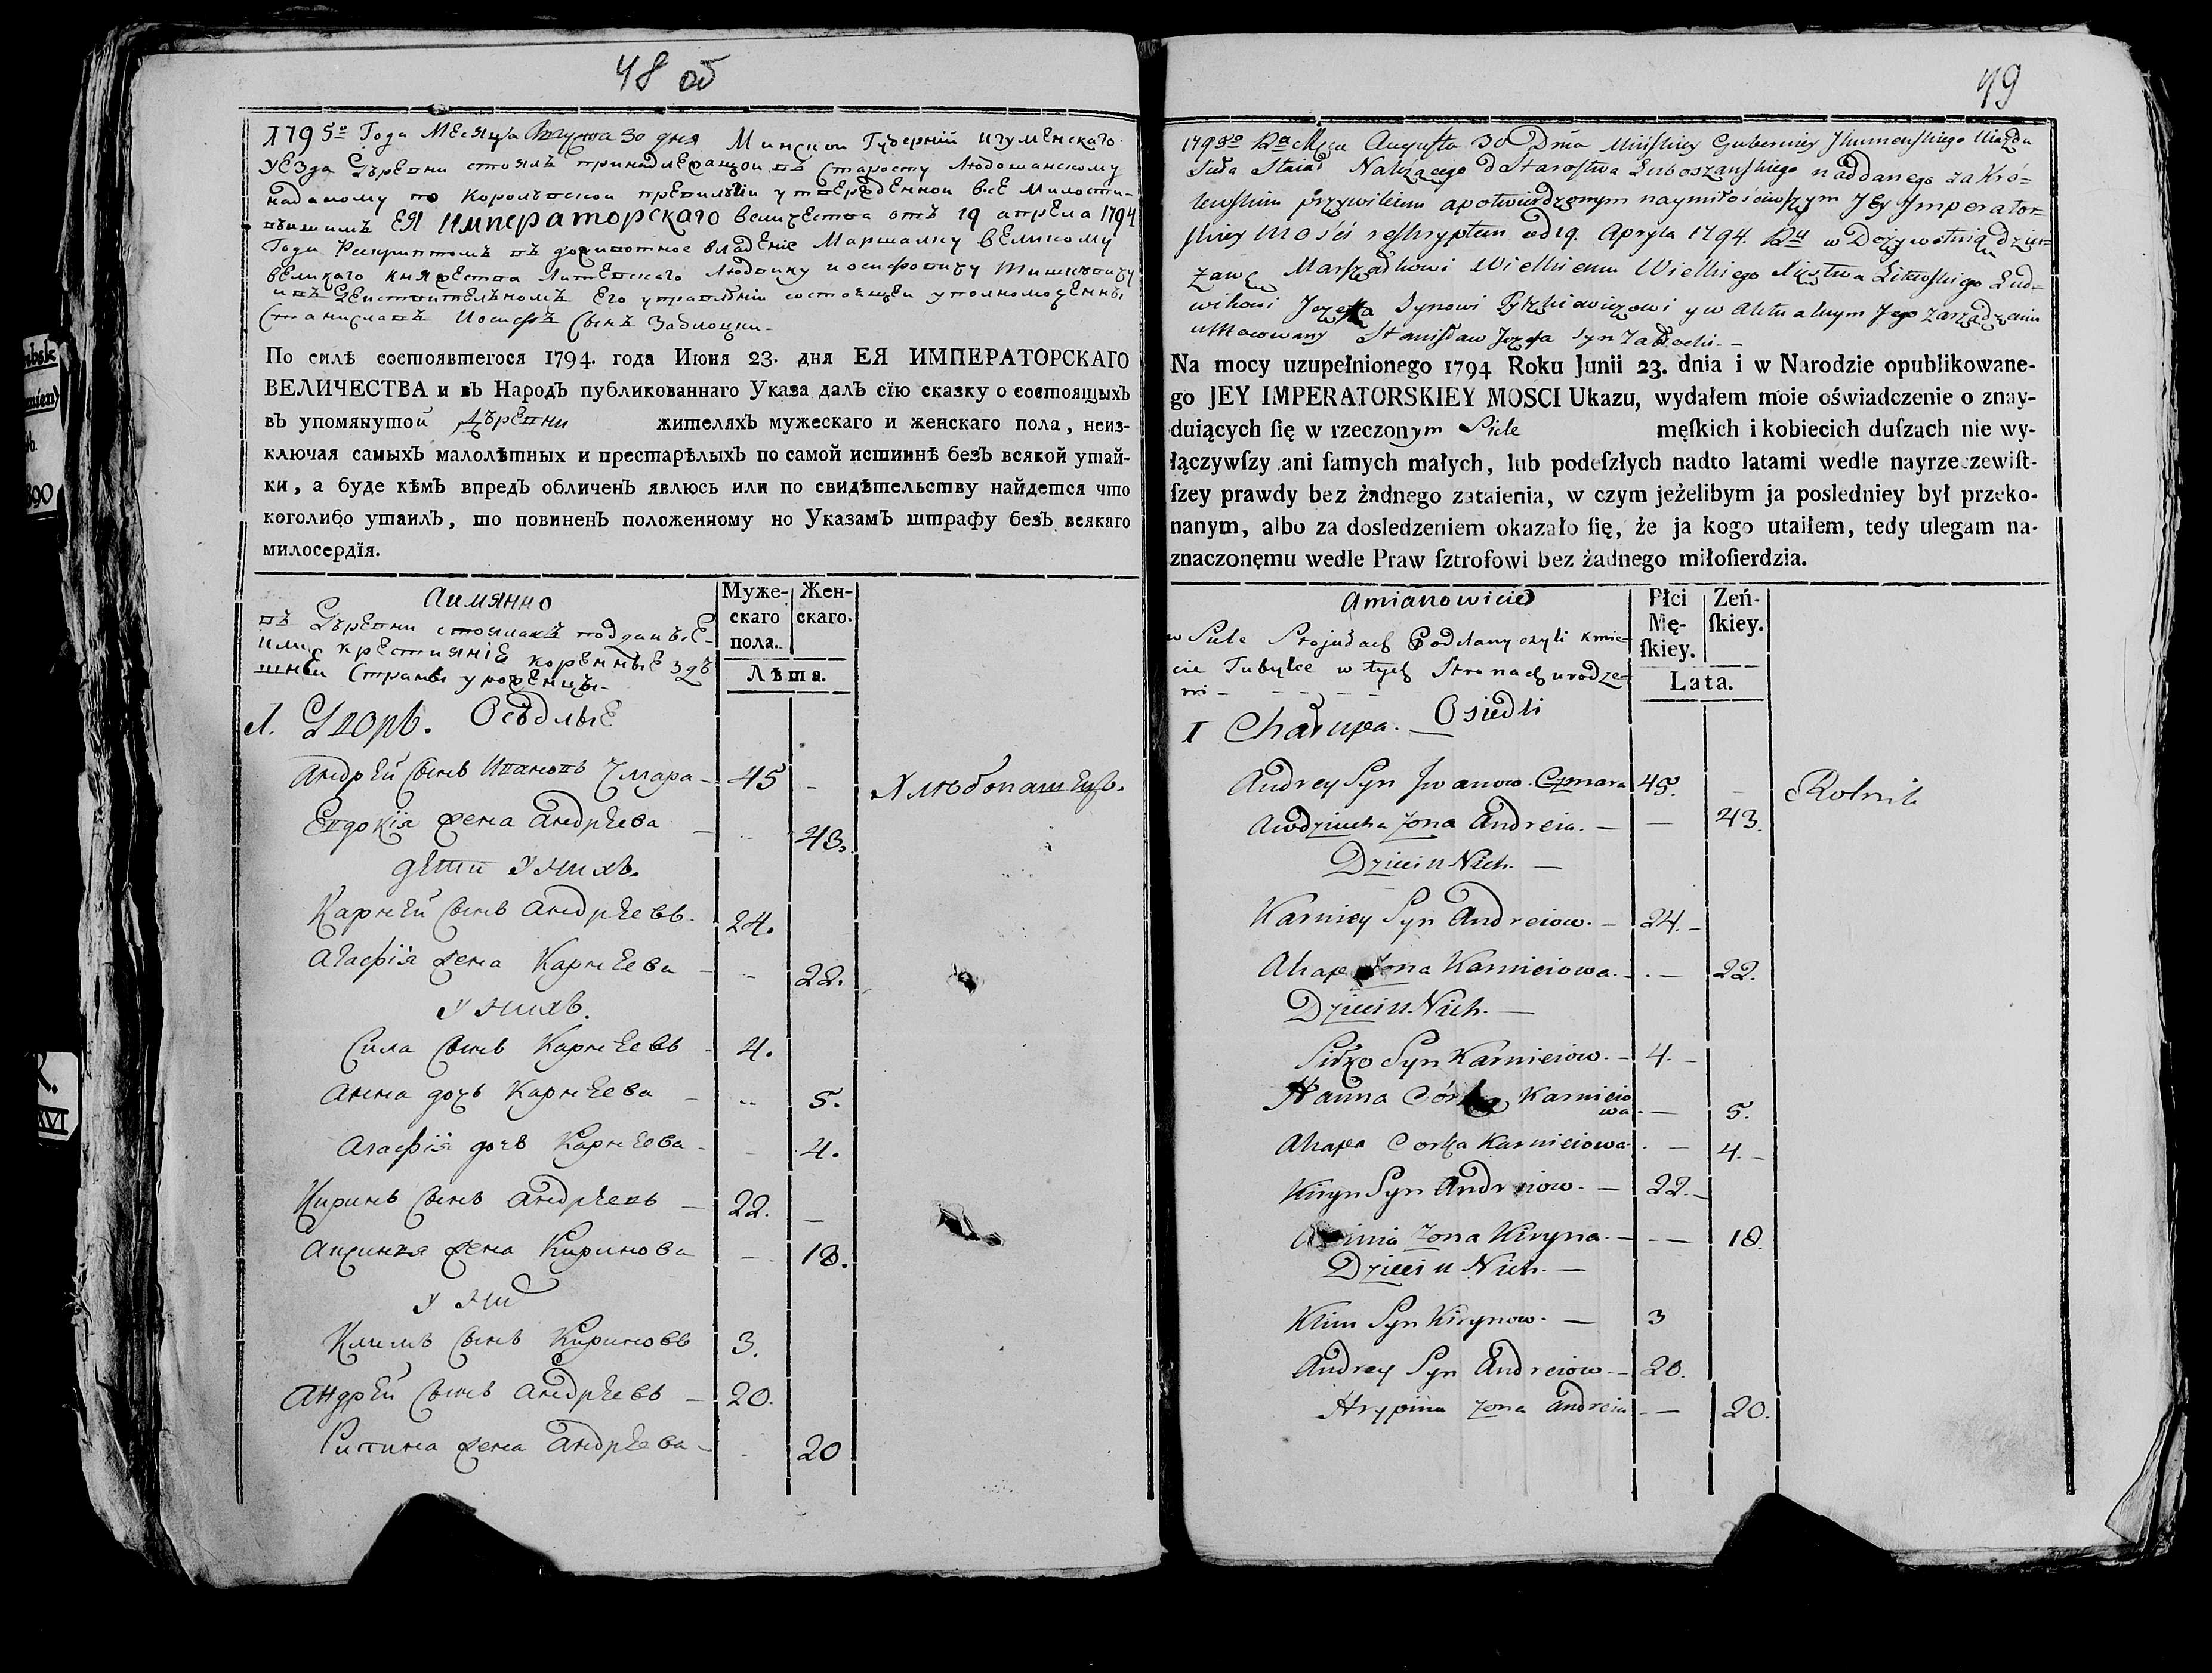 48 об
1795го Года Месяца Августа 30 дня Минской Губерніи Игуменскаго
Уезда Деревни стоялъ принадлежащой въ Старосту Любошанскому
наданому по Королевской превилѣіи утвержденной все Милости-
вѣишимъ ЕЯ Императорскаго величества отъ 19 апреля 1794
Года Рескриптомъ въ доживотное владѣніе Маршалку великому
великаго княжества Литевскаго Людвику иосифовичу Тишкевичу
и въ Действителномъ Его управленіи состоящеи уполномоченны
Станиславъ Иосифъ Сынъ Заблоцки-
По силѣ состоявшегося 1794. года Июня 23. дня ЕЯ ИМПЕРАТОРСКАГО
ВЕЛИЧЕСТВА и въ Народъ публикованнаго Указа далъ сїю сказку о состоящыхъ
въ упомянутой Дѣревни жителяхъ мужескаго и женскаго пола, неиз-
ключая самыхъ малолѣтных и престарѣлыхъ по самой истиннѣ безъ всякой утай-
ки, а буде кѣмъ впредь обличенъ явлюсь или по свидѣтельству найдется что
коголибо утаилъ, то повиненъ положенному но Указамъ штрафу безъ всякаго
милосердїя.
Аимянно
въ Деревни стоялахъ подданые
или крестияніе коренные здѣ
шнеи Страны уроженцы-
Муже-
скаго
пола.
Жен-
скаго.
Лѣта.
1. Дворъ. Осѣдлые
Андрей Сынъ Ивановъ Чмара - 45 -
Хлѣбопашецъ.
Евдокія жена Андрѣева - 43.
дети У нихъ.
Карнѣй Сынъ Андрѣевъ. 24.
Агафія жена Карнѣева - 22.
У нихъ.
Сила Сынъ Карнѣевъ - 4.
Анна дочь Карнѣева - 5.
Агафія дочь Карнѣева - 4.
Киринъ Сынъ Андрѣевъ - 22. -
Аксиния жена Киринова - 18.
У них
Климъ Сынъ Кириновъ 3.
Андрѣй Сынъ Андрѣевъ - 20.
Рипина жена Андрѣева - 20
49
1795go Ru Msca Augusta 30 Dnia Mińskiey Guberniey Jhumenskiego Uiazdu
Sieła Staiał Nalezącego do Starostwa Luboszanskiego naddanego za Kro=
lewskim przywileiem apotwierdzonym naymiłościwszym Jey Imperator=
skiey Mosći reskryptem od 19. Apryla 1794. Ru w Dożywotnią dzier=
zawę Marszałkowi Wielkiemu Wielkiego Xięstwa Litewskiego Lud=
wikowi Jozefa Synowi Tyszkiewiczowi y w Aktualnym Jego zarządzeniu
uMocowany Stanisław Jozefa Syn Zabłocki. -
Na mocy uzupełnionego 1794 Roku Junii 23. dnia i w Narodzie opublikowane-
go JEY IMPERATORSKIEY MOSCI Ukazu, wydałem moie oświadczenie o znay-
duiących ſię w rzeczonym Siele męſkich i kobiecich duſzach nie wy-
łączywſzy ani ſamych małych, lub podeſzłych nadto latami wedle nayrzeczewiſt-
ſzey prawdy bez żadnego zataienia, w czym jeżelibym ja posledniey był przeko-
nanym, albo za dosledzeniem okazało ſię, że ja kogo utaiłem, tedy ulegam na-
znaczonęmu wedle Praw ſztrofowi bez żadnego miłoſierdzia.
Amianowicie
w Siele Stojałach Poddany czyli kmie=
cie Tubylce w tych Stronach urodze=
ni -
Płci
Mę-
ſkiey.
Zeń-
ſkiey.
Lata.
I Chałupa. - Osiedli
Andrey Syn Jwanow. Czmara 45. -
Rolnik
Awdziucha Zona Andreia. - - 43.
Dzieci u Nich. -
Karniey Syn Andreiow. - 24. -
Ahapa Zona Karnieiowa. - - 22.
Dzieci u Nich. -
Siłko Syn Karnieiow. - 4. -
Hanna Córka Karnieio
wa. - 5.
Ahapa Corka Karnieiowa. - 4. -
Kiryn Syn Andreiow. - 22. -
zona Kiryna. - - 18.
Dzieci u Nich. -
Klim Syn Kirynow. - 3
Andrey Syn Andreiow. - 20.
Hrypina Zona Andreia - - 20.